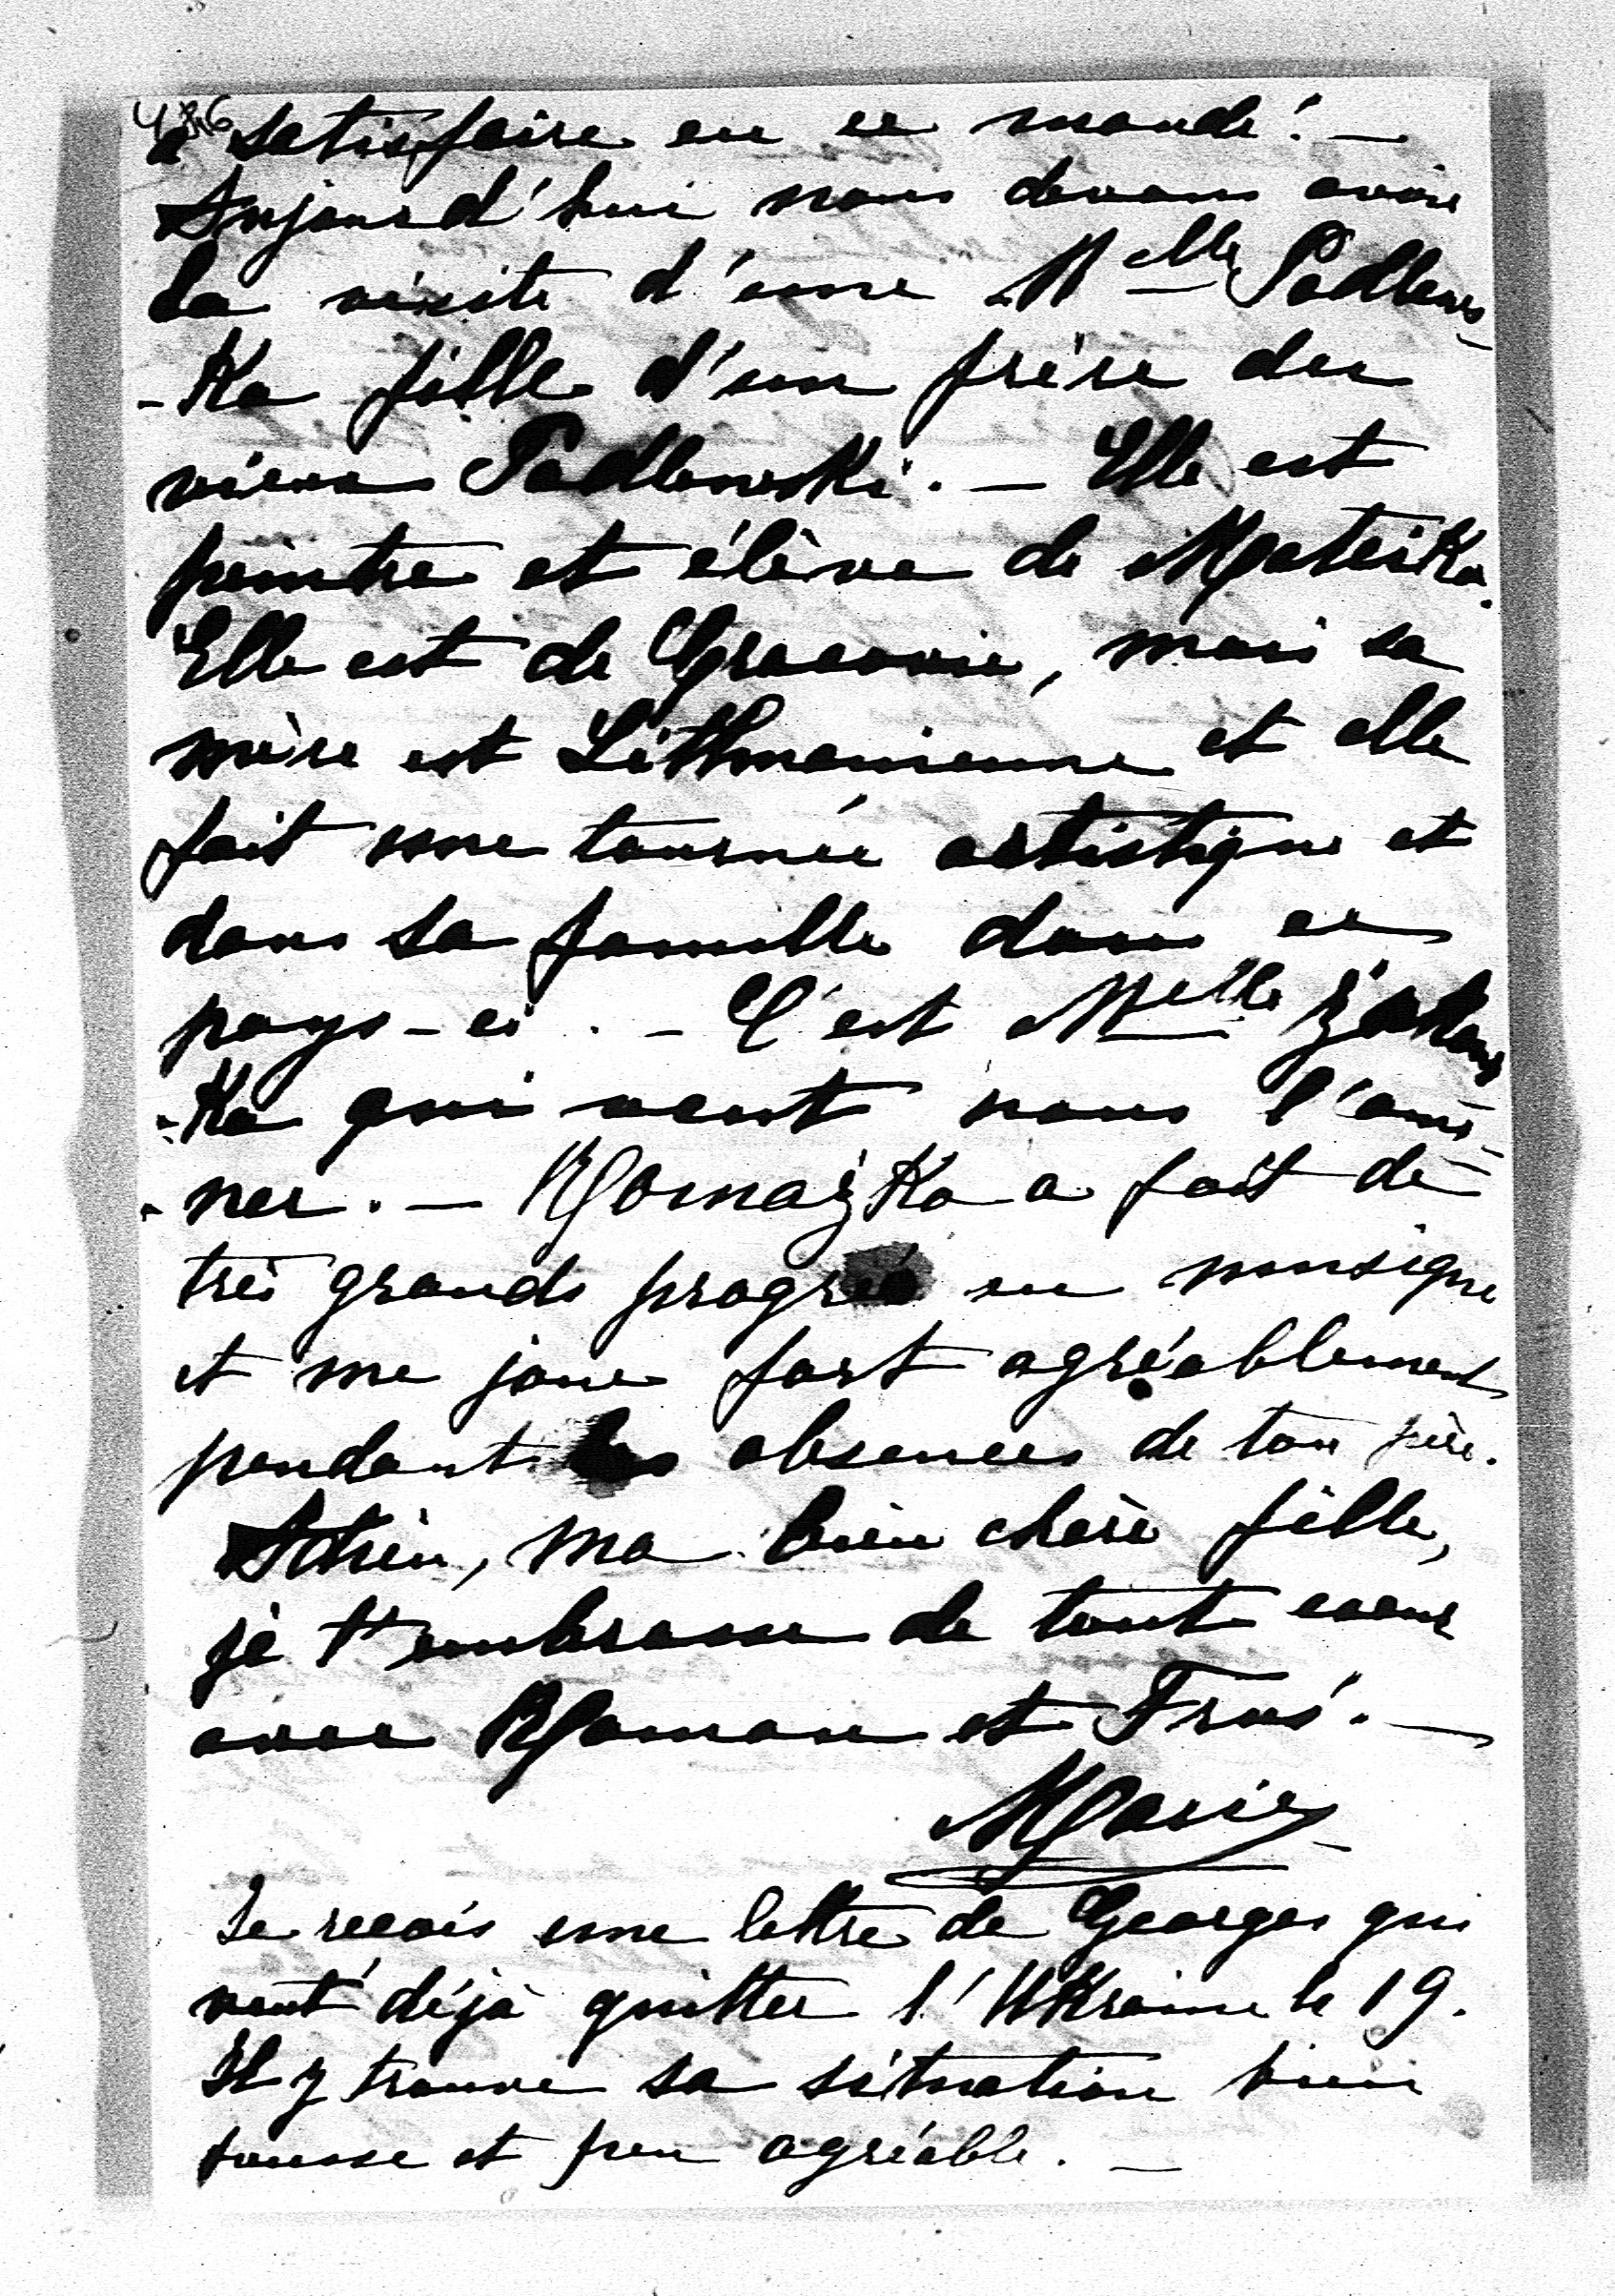 à satisfaire en ce monde! —
Aujourd'hui nous devons avoir
la visite d'une Melle Podlews-
-Ka fille d'un frère du
vieux Podlewski. — Elle est
peintre et élève de MateiKo.
Elle est de Cracovie, mais sa
mère est Lithuanienne et elle
fait une tournée artistique et
dans sa famille dans ce
pays-ci. — C'est Melle
-Ka qui veut nous l'amè-
-ner. — RomaïzKa a fait de
très grands progrès en musique
et me joue fort agréablement
pendant les absences de ton père.
Adieu, ma bien chère fille,
je t'embrasse de tout coeur
avec Roman et Fruś. —
Marie
Je reçois une lettre de Georges qui
veut déjà quitter l'UKraine le 19.
Il y trouve sa situation bien
fausse et peu agréable. —